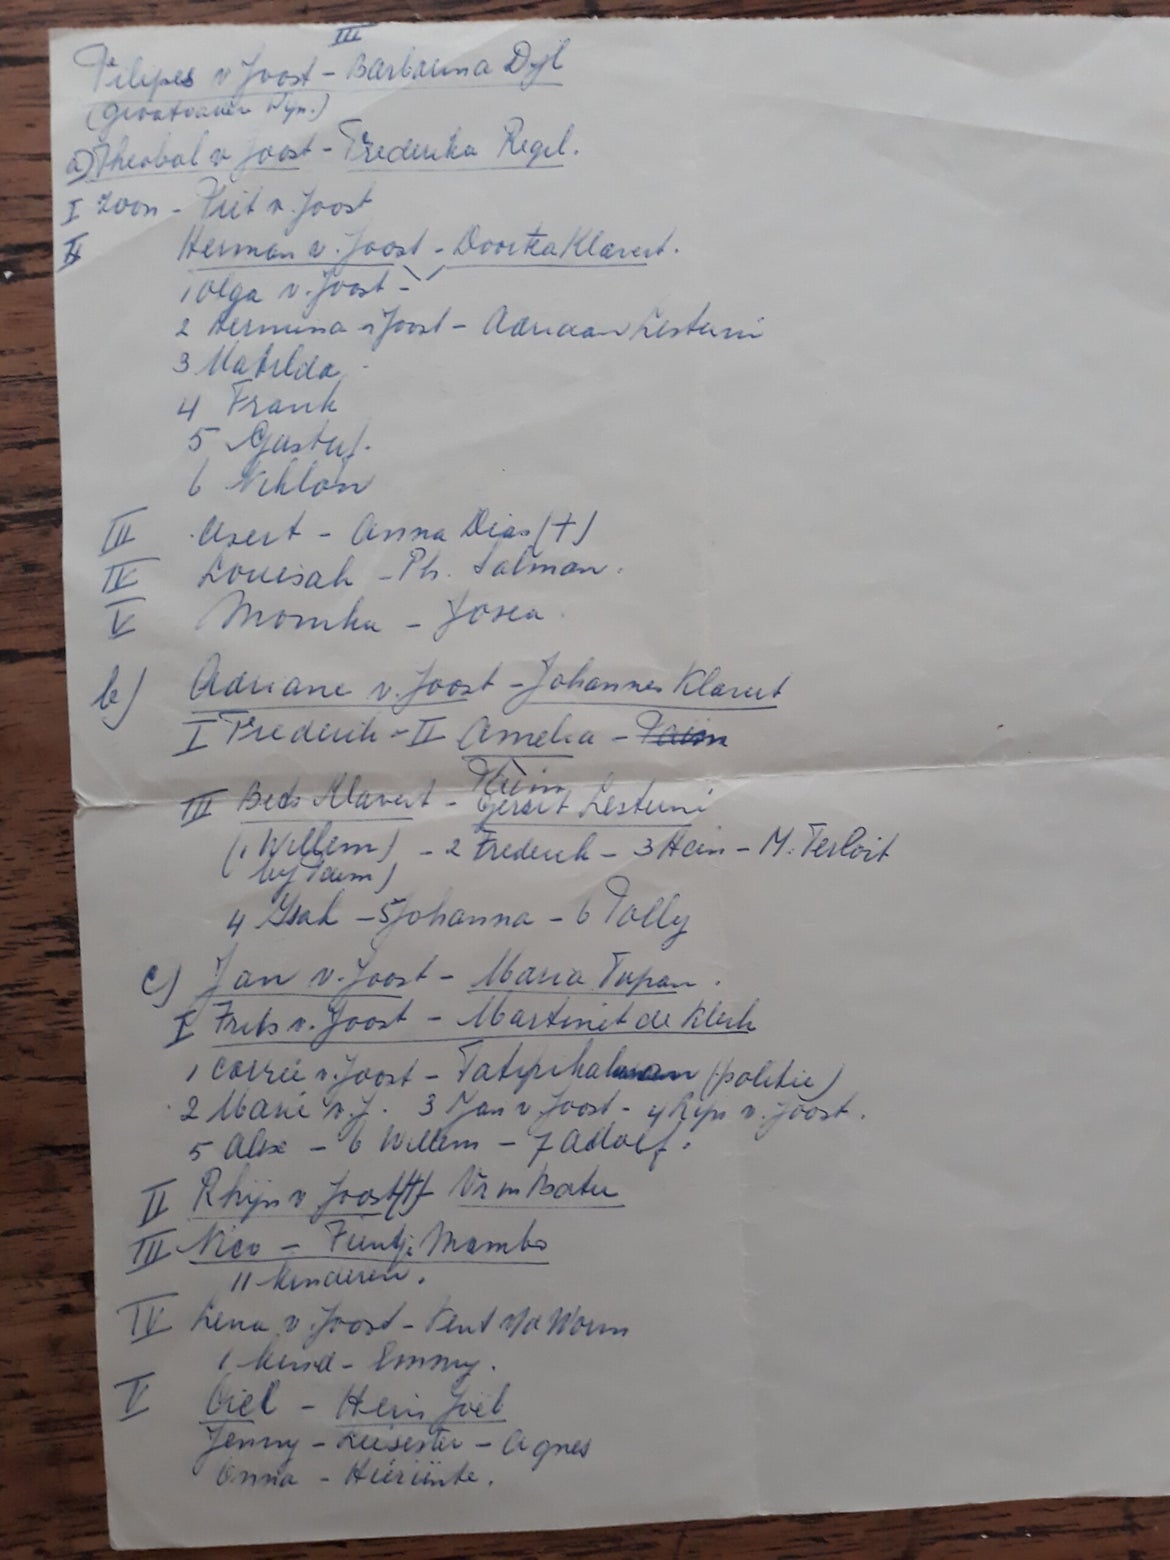 III
Filipes v Joost - Barbarina Dyl
(Grootvader Wyn.)
a) Theobal v Joost - Frederika Regel.
I zoon - Piet v. Joost
II Herman v. Joost - Doortea Klavert.
1 Olga v. Joost -
2 Hermina v Joost - Adriaan Lesteuni
3 Matilda
4 Frank
5 Gustuf.
6 Niklon
III Evert - Anna Dias (+)
IV Louisah - Ph. Salman.
V Monika - Josea
b) Adriane v. Joost - Johannes Klavert
I Frederik - II Amelia -
III Beds Klavert - Gerrit Lesteuni
(1 Willem) - 2 Frederik - 3 Hein - M. Terloit
4 Isak - 5 Johanna - 6 Polly
c) Jan v. Joost - Maria Tupan.
I Frits v. Joost - Martinit de Klerk
1 Correé v. Joost - (politie)
2 Marie v. J. 3 Jan v. Joost - 4 Ryn v. Joost.
5 Alex - 6 Willem - 7 Adolf.
II Rhijn v Joost (+)
III Nico - Fientje Mambo
11 kinderen.
IV Lena v. Joost - v/d Worm
1 kind - Emmy.
V - Hein Joël
Jenny - - Agnes
Anna -